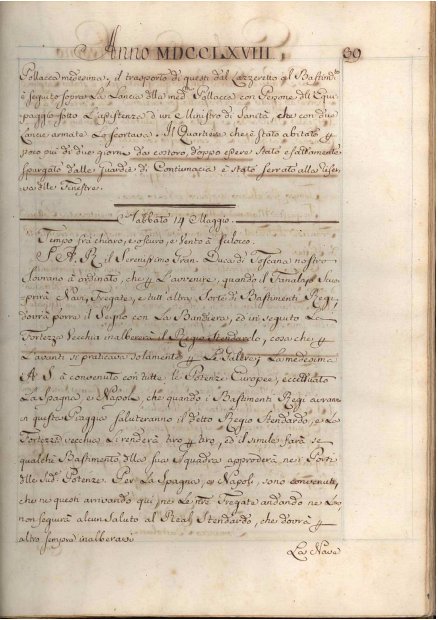 Anno MDCCLXVIII. 69
Pollacca medesima, il trasporto di questi dal Lazzeretto al Bastimto
è seguito sopra la Lancia della medma Pollacca con Persone dell'Equi-
paggio sotto l'assistenza d'un Ministro di Sanità, che con due
Lancie armate lo scortava. Il Quartiere che è stato abitato p
poco più di due giorni da costoro, doppo essere stato esattamente
spurgato dalle Guardie di Contumacia è stato serrato alla riser-
va delle Finestre.
Sabbato 14 Maggio.
Tempo frà chiaro, e oscuro, e Vento à Scilocco.
S. A. R. il Serenissimo Gran Duca di Toscana nostro
Sovrano à ordinato, che p l'avvenire, quando il Fanalajo Scuo-
prirà Navi, Fregate, e tutt'altra Sorte di Bastimenti Regj,
dovrà porre il Segno con la Bandiera, ed in seguito la
Fortezza Vecchia inalbererà il Regio Stendardo, cosa che p
l'avanti si praticava solamente p le Galere; La medesima
A. S. à convenuto con tutte le Potenze Europee, eccettuato
la Spagna, e Napoli, che quando i Bastimenti Regi
a questa Piaggia saluteranno il detto Regio Stendardo, e la
Fortezza vecchia li renderà tiro p tiro, ed il simile farà se
qualche Bastimento della sua Squadra approderà nei Porti
delle Potenze. Per la Spagna, e Napoli, sono convenuti,
che ne questi arrivando quì, ne le nre Fregate andando ne
non seguirà alcun Saluto al Real Stendardo, che dovrà p
altro sempre inalberarsi
La Nave